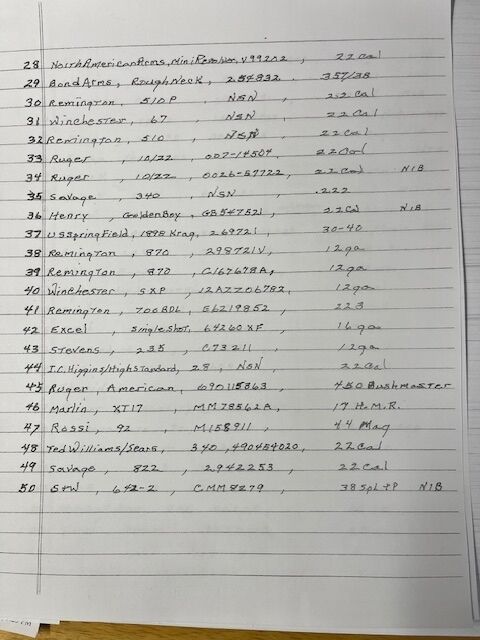 28 North American Arms, Mini Revolver, V99202, 22 Cal
29 Bond Arms, Rough Neck, 254832. 357/38
30 Remington, 510P, NSN, 22 Cal
31 Winchester, 67, NSN, 22 Cal
32 Remington, 510, NSN, 22 Cal
33 Ruger, 10/22, 007-14504, 22 Cal
34 Ruger, 10/22, 0026-57722, 22 Cal NIB
35 Savage, 340, NSN, .222
36 Henry, Golden Boy, GB547521, 22 Cal NIB
37 US Springfield, 1898 Krag, 269721, 30-40
38 Remington, 870, 298721V, 12ga
39 Remington, 870, C167678A, 12ga
40 Winchester, SXP, 12AZZ06782, 12ga
41 Remington, 700BDL, E6219852, 223
42 Excel, Single Shot, 64260XF, 16ga
43 Stevens, 235, C73211, 12ga
44 J.C. Higgins/High Standard, 28, NSN, 22 Cal
45 Ruger, American, 690115863, 450 Bushmaster
46 Marlin, XT17, MM78562A, 17 H.M.R.
47 Rossi, 92, M158911, 44 Mag
48 Ted Williams/Sears, 340, 490454020, 22 Cal
49 Savage, 822, 2942253, 22 Cal
50 S+W, 642-2, CMM8279, 38 Spl +P NIB